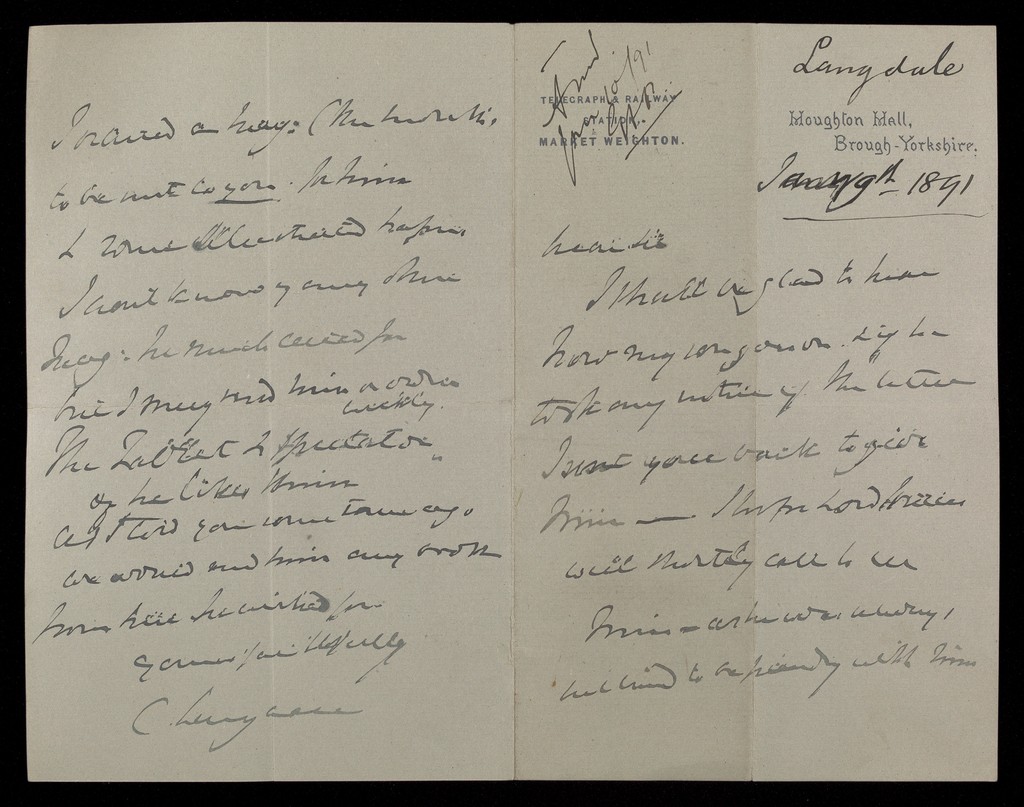 Langdale
TELEGRAPH & RAILWAY
STATION,
MARKET WEIGHTON.
Houghton Hall,
Brough-Yorkshire.
Jany 9th 1891
Ansd
10/91
Dear Sir
I shall be glad to hear
how my son goes on. & if he
took any notice of the letter
I sent you back to give
him — I hope Lord
will shortly call to see
him – as he was always
inclined to be friendly with him
I ordered a Mag: (the
to be sent to you for him
& some Illustrated papers
I don't know of any other
Mag: he much cared for
but I may send him
weekly.
The Tablet & Spectator
if he likes them
as I told you some time ago
we would send him any book
from here he wished for
yours faithfully
C Langdale